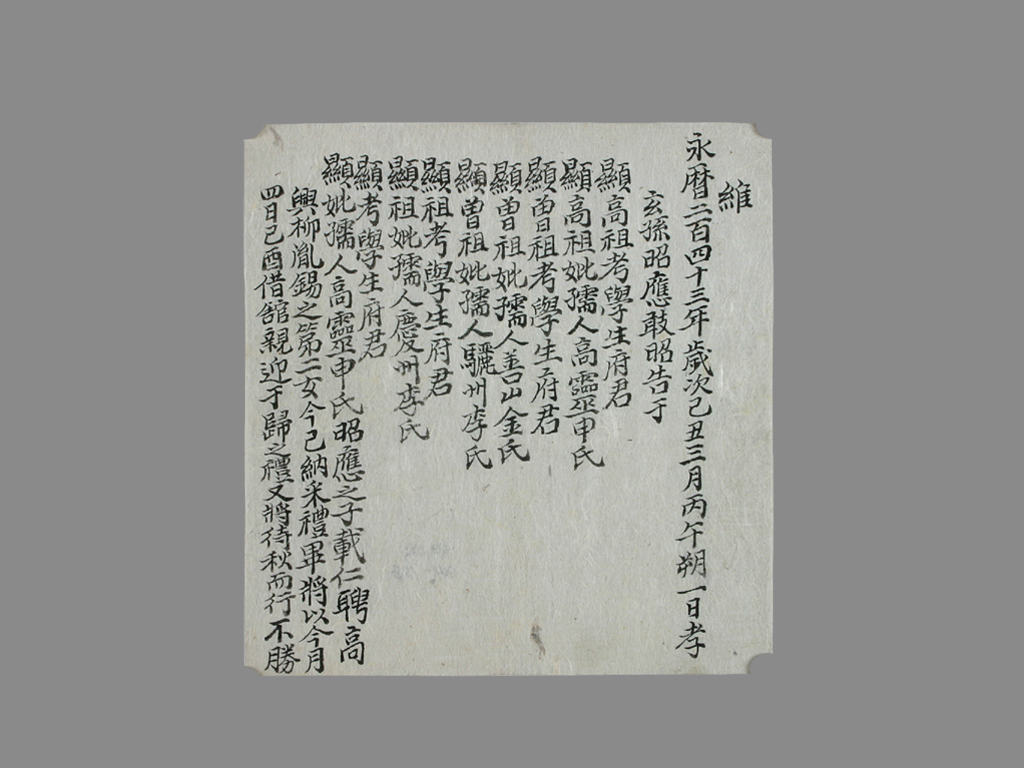 維
永曆二百四十三年歲次己丑三月丙午朔一日孝
玄孫昭應敢昭告于
顯高祖考學生府君
顯高祖妣孺人高靈申氏
顯曾祖考學生府君
顯曾祖妣孺人善山金氏
顯曾祖妣孺人驪州李氏
顯祖考學生府君
顯祖妣孺人慶州李氏
顯考學生府君
顯妣孺人高靈申氏昭應之子載仁聘高
興柳胤錫之第二女今已納采禮畢將以今月
四日己酉借館親迎于歸之禮又將待秋而行不勝